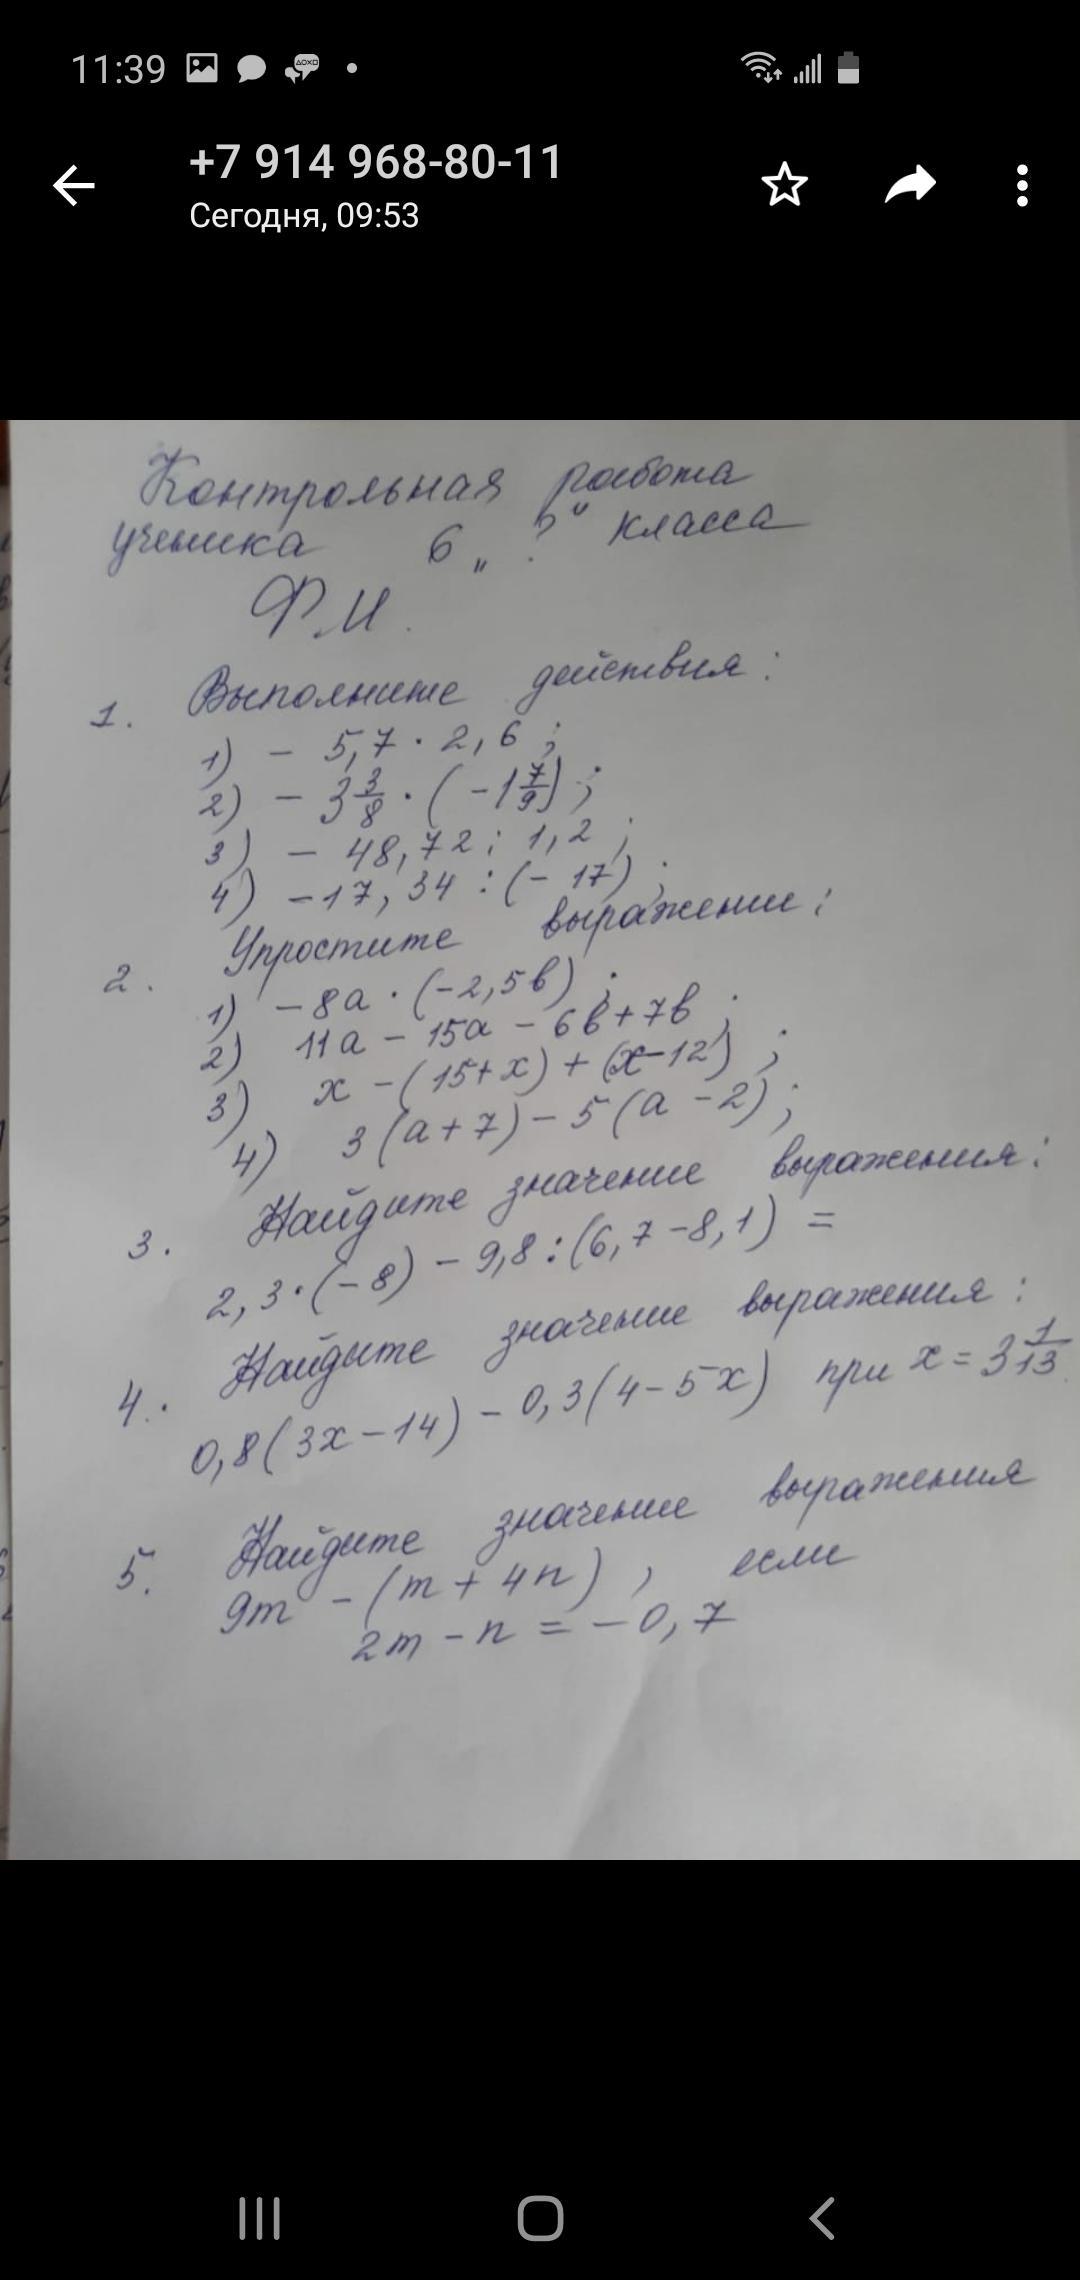 11:39
+7 914 968-80-11
Сегодня, 09:53
Контрольная работа
ученика 6 „ ? “ класса
Ф. И.
1. Выполните действия:
1) - 5,7 · 2,6 ;
2) - 3 3/8 · ( - 1 7/9 ) ;
3) - 48,72 : 1,2 ;
4) - 17,34 : (- 17) ;
2. Упростите выражение:
1) - 8a · (-2,5b) ;
2) 11a - 15a - 6b + 7b ;
3) x - (15 + x) + (x - 12) ;
4) 3 (a + 7) - 5 (a - 2) ;
3. Найдите значение выражения:
2,3 · (- 8) - 9,8 : (6,7 - 8,1) =
4. Найдите значение выражения:
0,8 (3x - 14) - 0,3 (4 - 5x) при x = 3 1/13
5. Найдите значение выражения
9m - (m + 4n) , если
2m - n = - 0,7